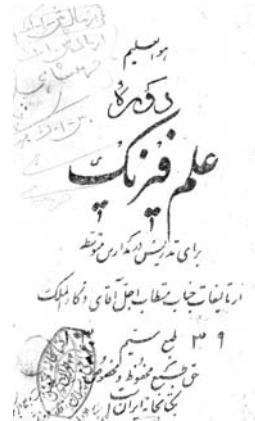 هو العلیم
دوره
علم فیزیک
برای تدریس در مدارس متوسطه
از تالیفات جناب مستطاب اجل آقای ذکاء الملک
طبع سیم
حق طبع محفوظ و مخصوص
بکتابخانه ایران است